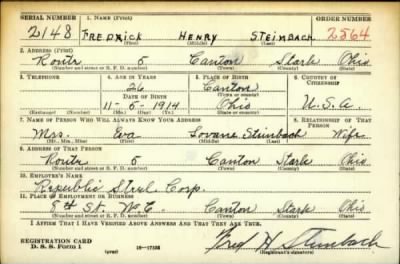 SERIAL NUMBER 1. NAME (Print) ORDER NUMBER
2148 FREDRICK HENRY STEINBACH 2564
(First) (Middle) (Last)
2. ADDRESS (Print)
Route 5 Canton Stark Ohio
(Number and street or R. F. D. number) (Town) (County) (State)
3. TELEPHONE 4. AGE IN YEARS 5. PLACE OF BIRTH 6. COUNTRY OF CITIZENSHIP
26 Canton
DATE OF BIRTH (Town or county)
11-5-1914 Ohio U.S.A.
(Exchange) (Number) (Mo.) (Day) (Yr.) (State or country)
7. NAME OF PERSON WHO WILL ALWAYS KNOW YOUR ADDRESS 8. RELATIONSHIP OF THAT PERSON
Mrs. Eva Steinbach Wife
(Mr., Mrs., Miss) (First) (Middle) (Last)
9. ADDRESS OF THAT PERSON
Route 5 Canton Stark Ohio
(Number and street or R. F. D. number) (Town) (County) (State)
10. EMPLOYER'S NAME
Republic Steel Corp.
11. PLACE OF EMPLOYMENT OR BUSINESS
8th St. N.E. Canton Stark Ohio
(Number and street or R. F. D. number) (Town) (County) (State)
I AFFIRM THAT I HAVE VERIFIED ABOVE ANSWERS AND THAT THEY ARE TRUE.
REGISTRATION CARD
D. S. S. Form 1 (over) 16—17105 Fred H Steinbach
(Registrant's signature)